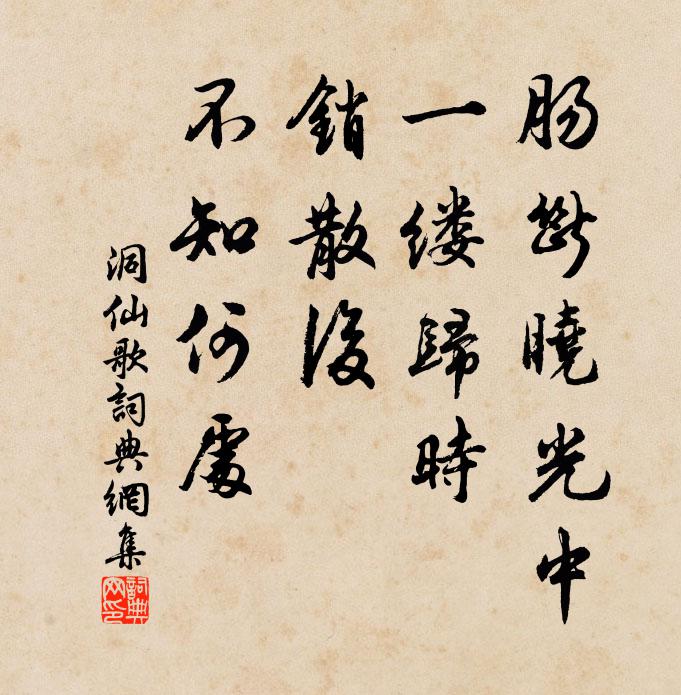 肠斷曉光中
一缕歸時
銷散後
不知何處
洞仙歌詞典網集
詞典网印